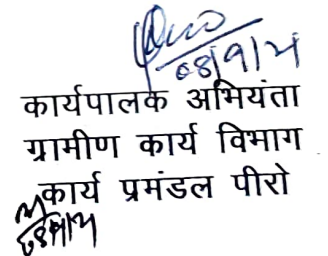 08/9/21
कार्यपालक अभियंता
ग्रामीण कार्य विभाग
कार्य प्रमंडल पीरो